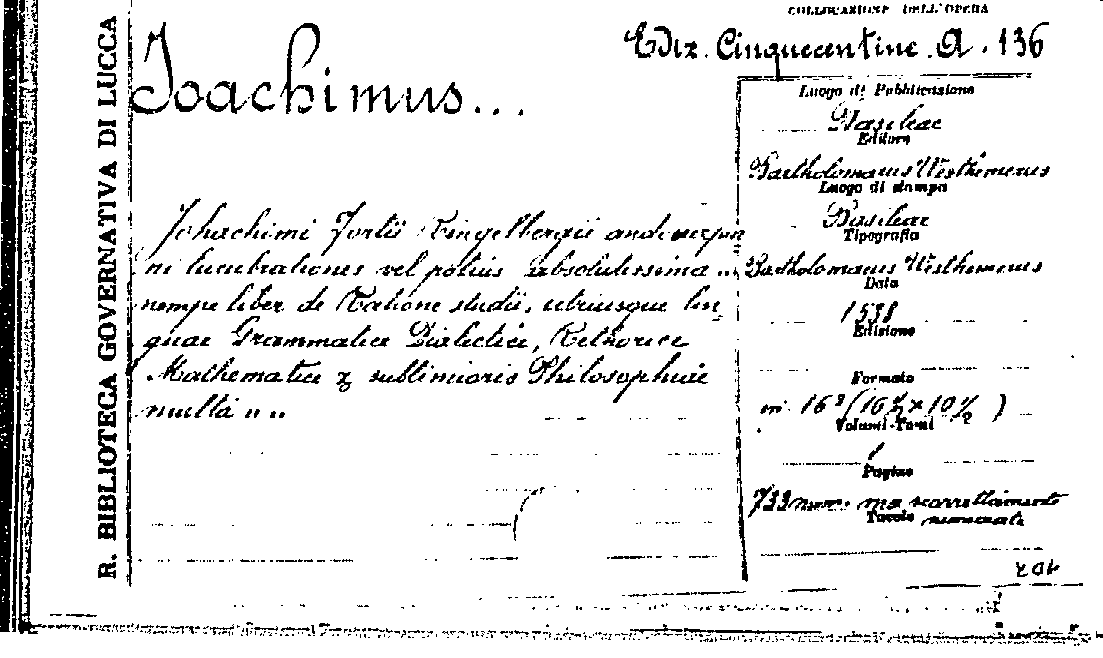 R. BIBLIOTECA GOVERNATIVA DI LUCCA
COLLOCAZIONE DELL'OPERA
Ediz. Cinquecentine. A. 136
Joachimus...
Luogo di Pubblicazione
Basileae
Editore
Bartholomaeus Westhemerus
Luogo di stampa
Basileae
Tipografia
Bartholomaeus Westhemerus
Data
1538
Edizione
Formato
in 16º (16½ x 10½)
Volumi-Tomi
1
Pagine
733 num. ma scorrettamente
numerate
Tavole
Johachimi Fortii Ringelbergii andoverpia
ni lucubrationes vel potius absolutissima ...
nempe liber de Ratione studii, utriusque lin_
guae Grammatica Dialectica, Rethorica
Mathematica & sublimioris Philosophiae
multa ...